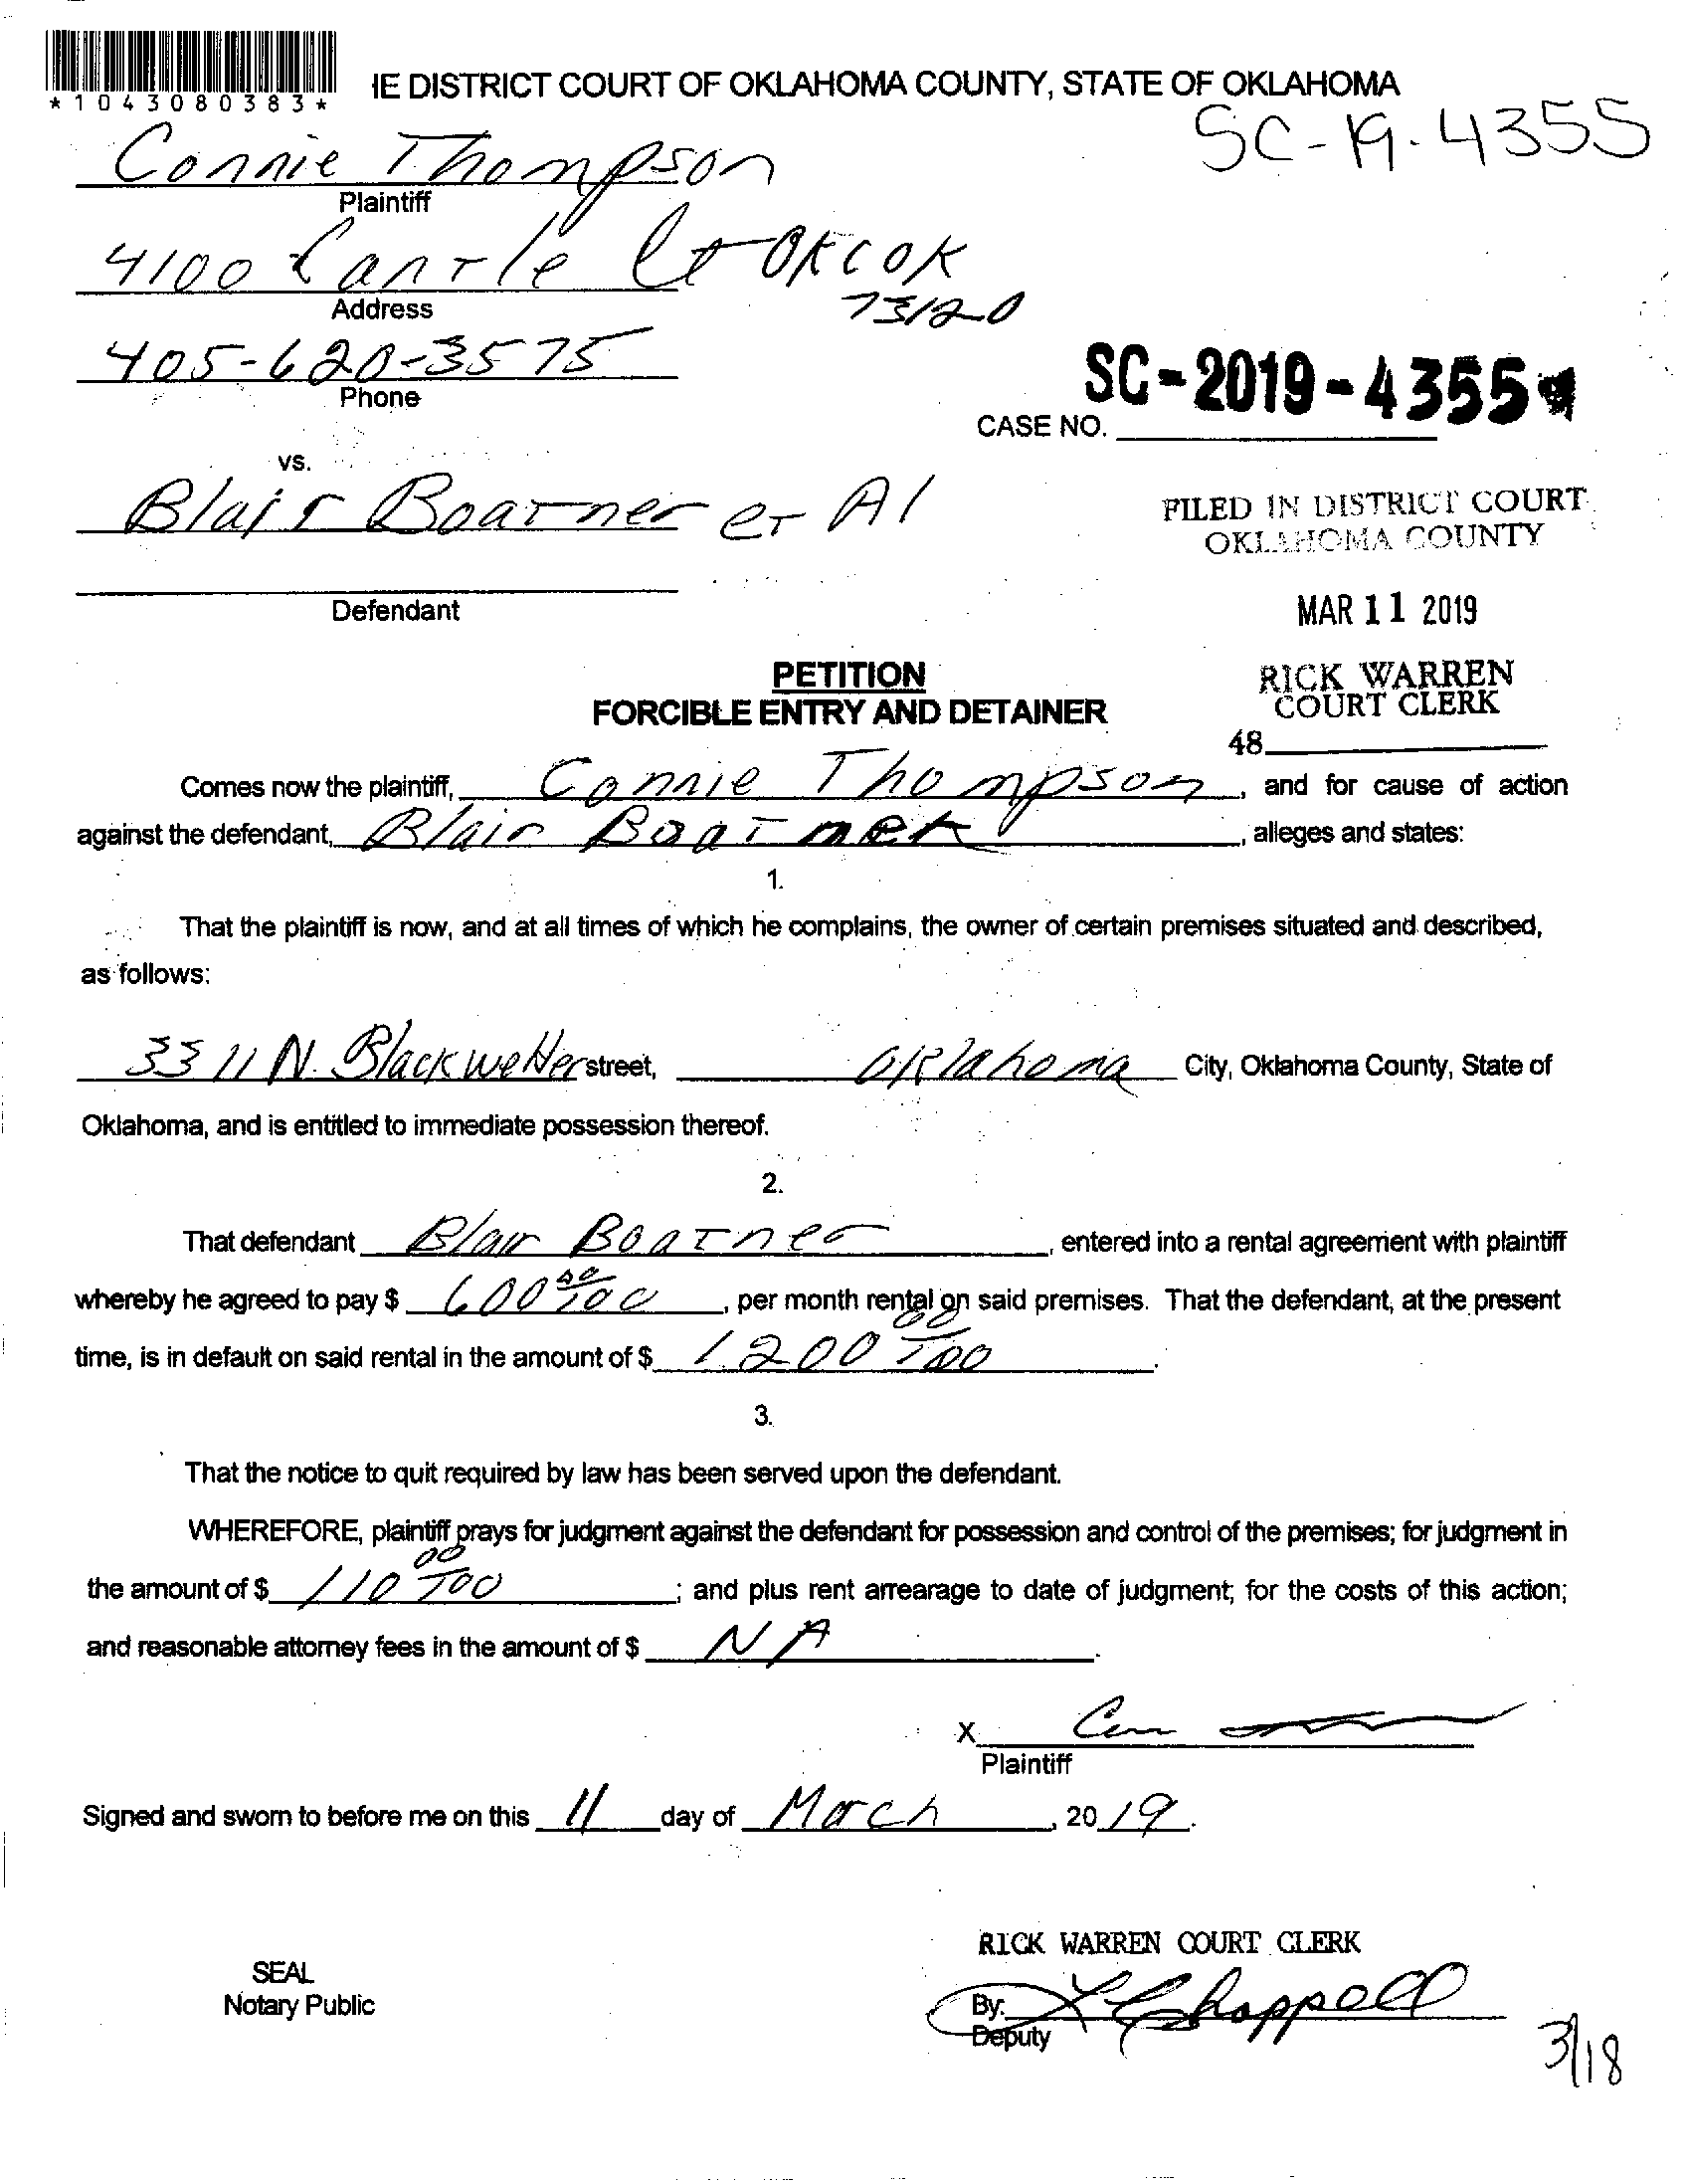 *1043080383*
IE DISTRICT COURT OF OKLAHOMA COUNTY, STATE OF OKLAHOMA
SC-19-4355
Connie Thompson
Plaintiff
4100 Cantle Ct OKC OK
73120
Address
405-620-3575
Phone
SC-2019-4355
CASE NO.
vs.
Blair Boatner et Al
FILED IN DISTRICT COURT
OKLAHOMA COUNTY
Defendant
MAR 11 2019
PETITION
FORCIBLE ENTRY AND DETAINER
RICK WARREN
COURT CLERK
48
Comes now the plaintiff, Connie Thompson, and for cause of action
against the defendant, Blair Boatner, alleges and states:
1.
That the plaintiff is now, and at all times of which he complains, the owner of certain premises situated and described,
as follows:
3311 N. Blackwelder street, Oklahoma City, Oklahoma County, State of
Oklahoma, and is entitled to immediate possession thereof.
2.
That defendant Blair Boatner, entered into a rental agreement with plaintiff
whereby he agreed to pay $ 600 00/100, per month rental on said premises. That the defendant, at the present
time, is in default on said rental in the amount of $ 1200 00/100.
3.
That the notice to quit required by law has been served upon the defendant.
WHEREFORE, plaintiff prays for judgment against the defendant for possession and control of the premises; for judgment in
the amount of $ 110 00/100; and plus rent arrearage to date of judgment; for the costs of this action;
and reasonable attorney fees in the amount of $ NA.
X
Plaintiff
Signed and sworn to before me on this 11 day of March, 2019.
RICK WARREN COURT CLERK
SEAL
Notary Public
By: Chappell
Deputy
3/18